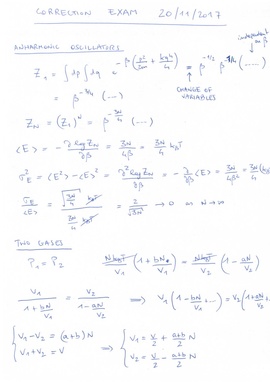 CORRECTION EXAM 20/11/2017
ANHARMONIC OSCILLATORS
independent of β
Z₁ = ∫dp ∫dq e^{-β(p²/2m + bq⁴/4)} = β^{-1/2} β^{-1/4} (.....)
= β^{-3/4} (...)
CHANGE OF VARIABLES
Z_N = (Z₁)^N = β^{-3N/4} (...)
<E> = -∂ log Z_N/∂β = 3N/4β = 3N/4 k_BT
σ_E² = <E²> - <E>² = ∂² log Z_N/∂β² = -∂/∂β <E> = 3N/4β² = 3N/4
σ_E/<E> = √(3N/4) k_BT / (3N/4 k_BT) = 2/√(3N) → 0 as N→∞
TWO GASES
P₁ = P₂ N k_BT/V₁ (1 + bN/V₁) = N k_BT/V₂ (1 - aN/V₂)
V₁/(1 + bN/V₁) = V₂/(1 - aN/V₂) ⟹ V₁(1 - bN/V₁ + ...) = V₂(1 + aN/V₂
{V₁ - V₂ = (a+b)N ⟹ {V₁ = V/2 + (a+b)/2 N
{V₁ + V₂ = V {V₂ = V/2 - (a+b)/2 N